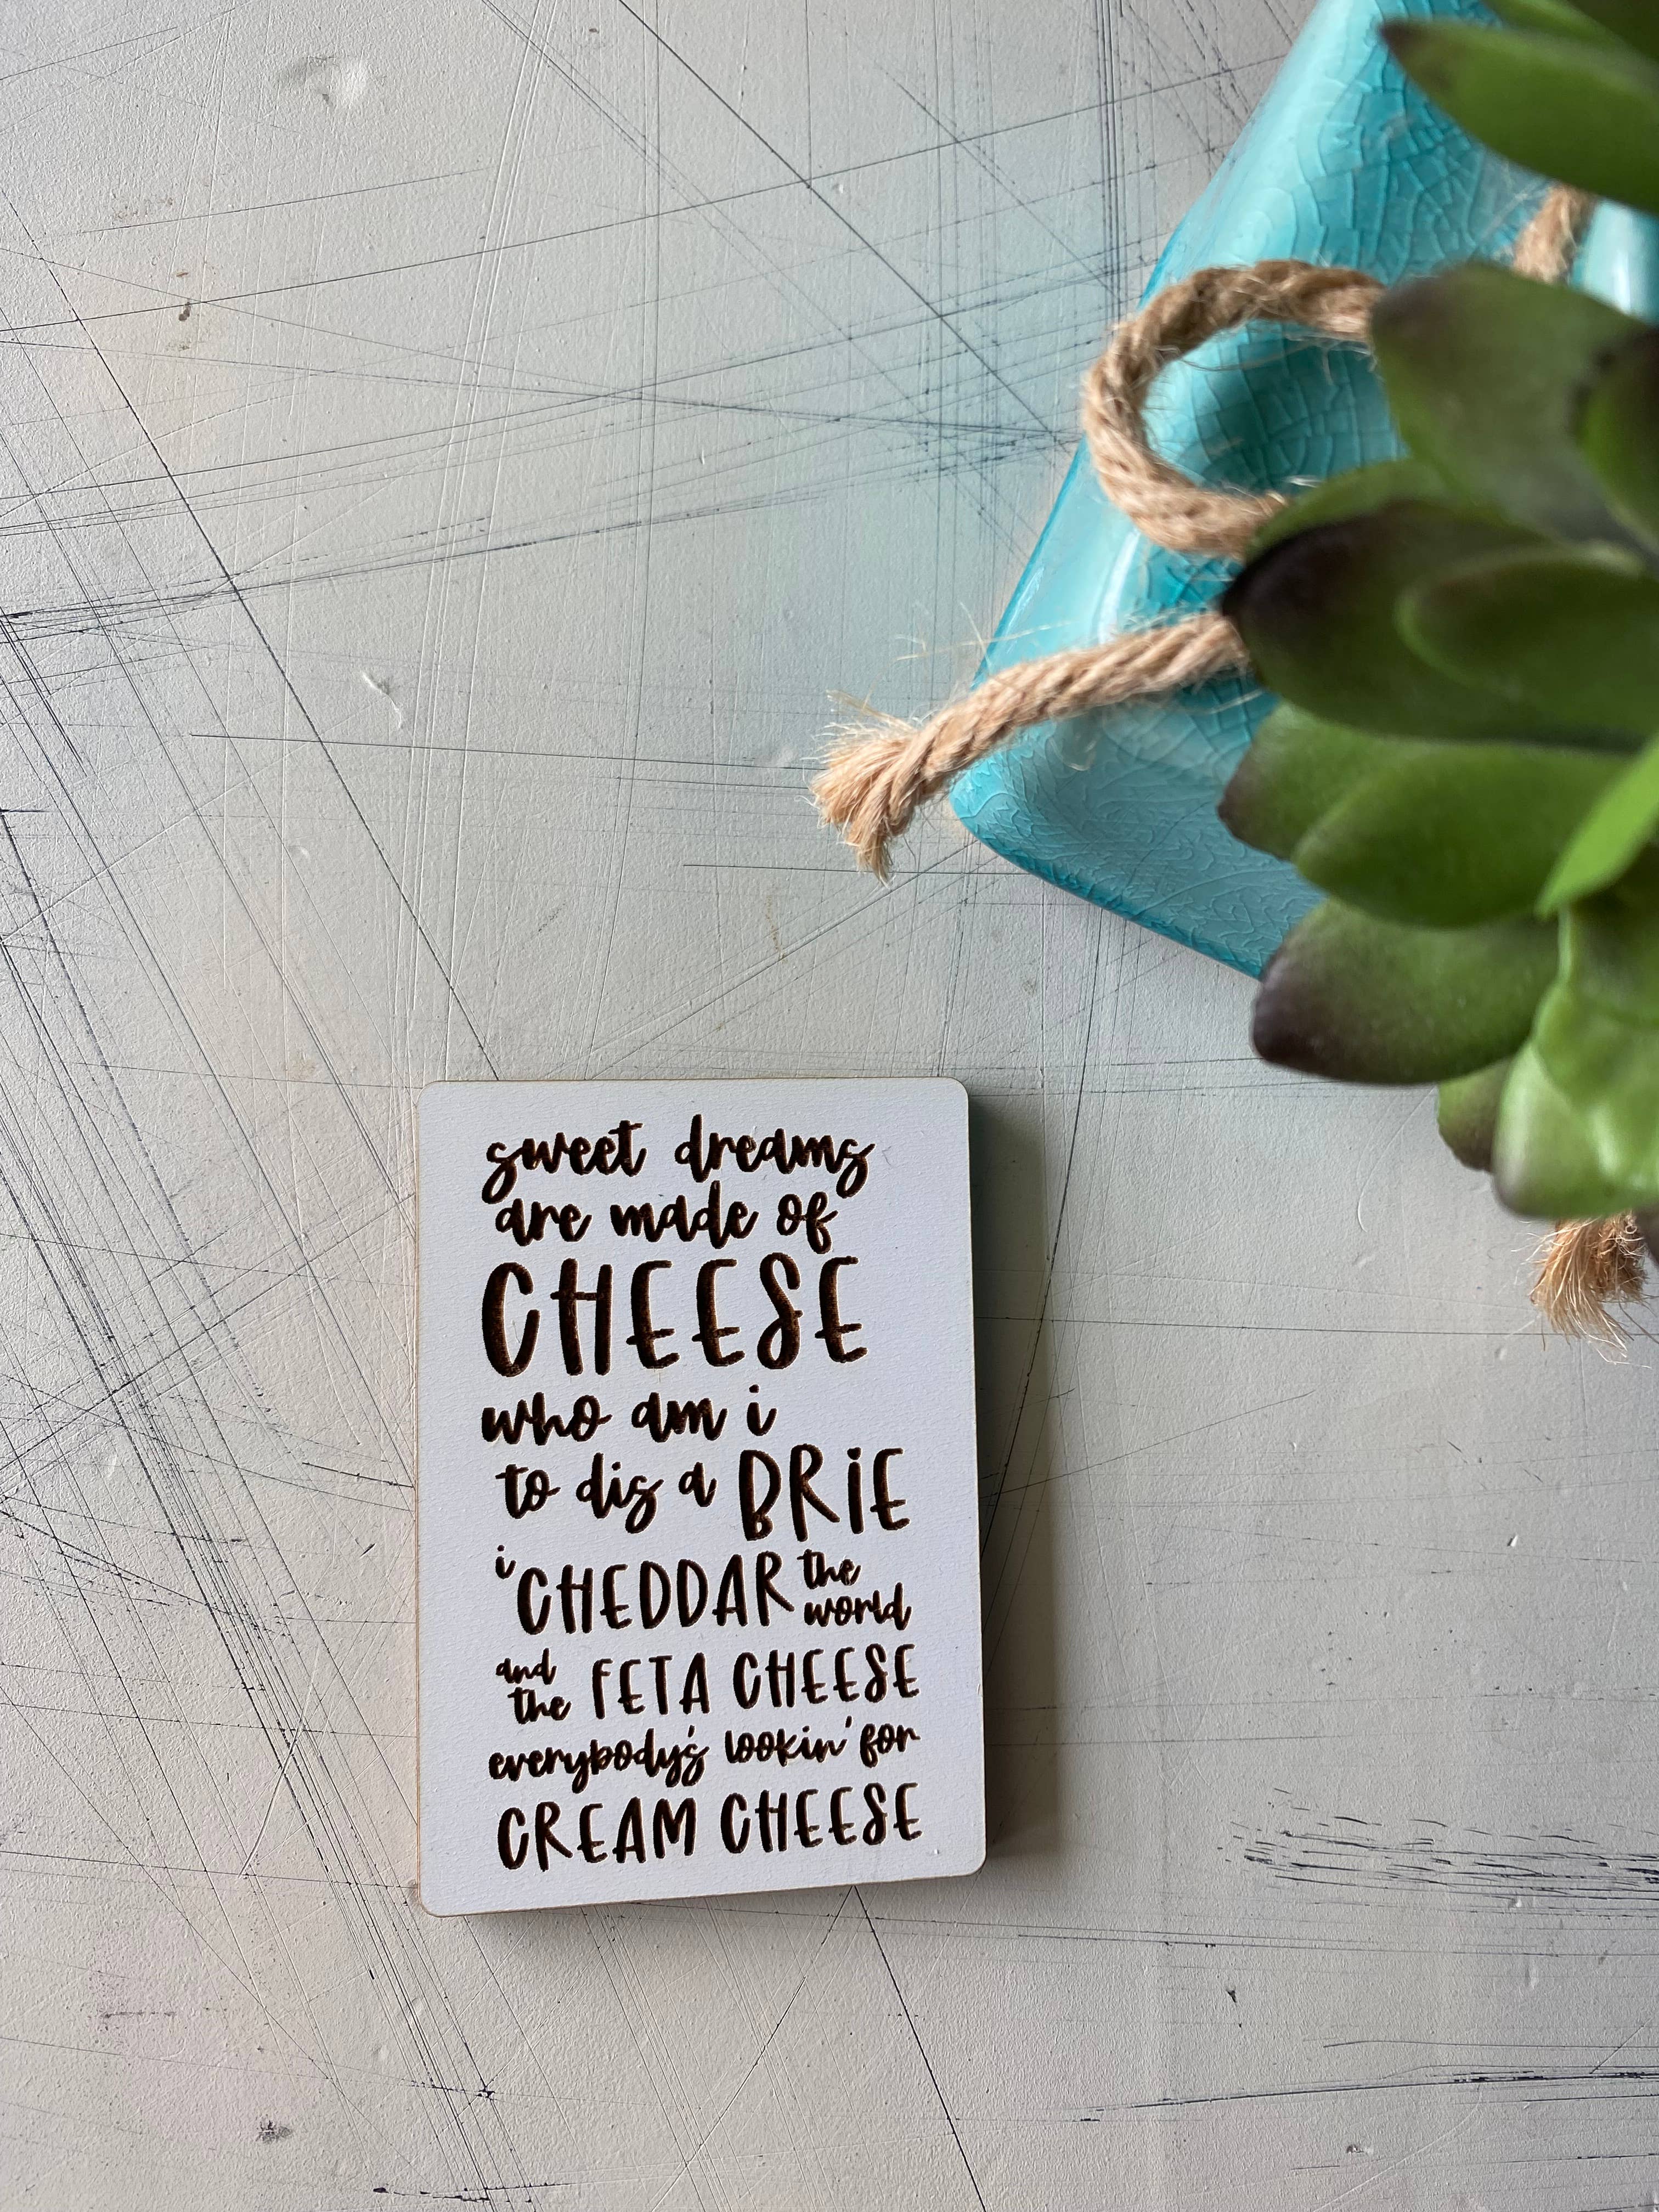 sweet dreams
are made of
CHEESE
who am i
to dis a BRiE
i CHEDDAR the world
and the FETA CHEESE
everybody's lookin' for
CREAM CHEESE